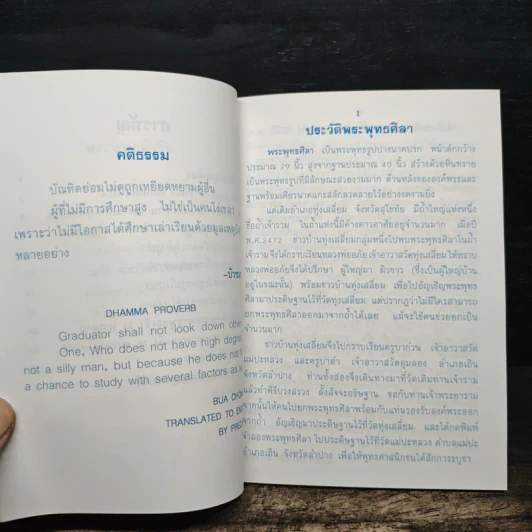 คติธรรม
บัณฑิตย่อมไม่ดูถูกเหยียดหยามผู้อื่น
ผู้ที่ไม่มีการศึกษาสูง ไม่ใช่เป็นคนโง่เขลา
เพราะว่าไม่มีโอกาสได้ศึกษาเล่าเรียนด้วยมูลเหตุ
หลายอย่าง
DHAMMA PROVERB
Graduator shall not look down other
One, Who does not have high degree
not a silly man, but because he does not
a chance to study with several factors as
BUA
TRANSLATED TO
BY
1
ประวัติพระพุทธศิลา
พระพุทธศิลา เป็นพระพุทธรูปปางนาคปรก หน้าตักกว้าง
ประมาณ 29 นิ้ว สูงจากฐานประมาณ 40 นิ้ว สร้างด้วยหินทราย
เป็นพระพุทธรูปที่มีลักษณะสวยงามมาก ด้านหลังขององค์พระและ
ฐานพร้อมเศียรนาคแกะสลักลวดลายไว้อย่างงดงามยิ่ง
แต่เดิมอำเภอทุ่งเสลี่ยม จังหวัดสุโขทัย มีถ้ำใหญ่แห่งหนึ่ง
ชื่อถ้ำเจ้าราม ในถ้ำแห่งนี้มีค้างคาวอาศัยอยู่จำนวนมาก เมื่อปี
พ.ศ.2472 ชาวบ้านทุ่งเสลี่ยมกลุ่มหนึ่งไปพบพระพุทธศิลาในถ้ำ
เจ้ารามจึงได้กราบเรียนหลวงพ่ออภัย เจ้าอาวาสวัดทุ่งเสลี่ยมให้ทราบ
หลวงพ่ออภัยจึงได้ปรึกษา ผู้ใหญ่มา ผิวขาว (ซึ่งเป็นผู้ใหญ่บ้าน
อยู่ในขณะนั้น) พร้อมชาวบ้านทุ่งเสลี่ยม เพื่อไปอัญเชิญพระพุทธ
ศิลามาประดิษฐานไว้ที่วัดทุ่งเสลี่ยม แต่ปรากฏว่าไม่มีใครสามารถ
ยกพระพุทธศิลาออกมาจากถ้ำได้เลย แม้จะใช้คนช่วยยกเป็น
จำนวนมาก
ชาวบ้านทุ่งเสลี่ยมจึงไปกราบเรียนครูบาก๋วน เจ้าอาวาสวัด
แม่ปะหลวง และครูบาคำ เจ้าอาวาสวัดอุมลอง อำเภอเถิน
จังหวัดลำปาง ท่านทั้งสองจึงเดินทางมาที่วัดเดิมท่าเจ้าราม
แล้วทำพิธีบวงสรวง ตั้งสัจจะอธิษฐาน ขอกับท่านเจ้าพระยาราม
จากนั้นให้คนไปยกพระศิลาพร้อมกับแท่นรองรับองค์พระออก
จากถ้ำ อัญเชิญมาประดิษฐานไว้ที่วัดทุ่งเสลี่ยม และได้กดพิมพ์
จำลองพระพุทธศิลา ไปประดิษฐานไว้ที่วัดแม่ปะหลวง ตำบลแม่ปะ
อำเภอเถิน จังหวัดลำปาง เพื่อให้พุทธศาสนิกชนได้สักการะบูชา